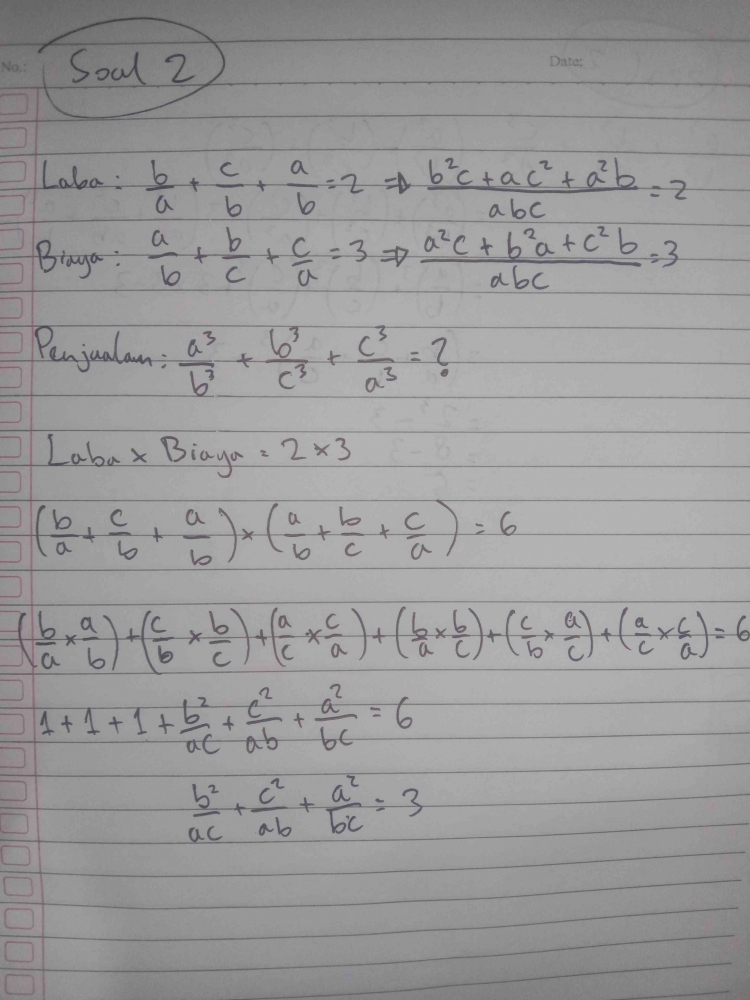 No.: Soal 2 Date:
Laba : b/a + c/b + a/b = 2 ⇒ (b²c + ac² + a²b)/abc = 2
Biaya : a/b + b/c + c/a = 3 ⇒ (a²c + b²a + c²b)/abc = 3
Penjualan : a³/b³ + b³/c³ + c³/a³ = ?
Laba × Biaya = 2 × 3
(b/a + c/b + a/b) × (a/b + b/c + c/a) = 6
(b/a × a/b) + (c/b × b/c) + (a/c × c/a) + (b/a × b/c) + (c/b × a/c) + (a/c × c/a) = 6
1 + 1 + 1 + b²/ac + c²/ab + a²/bc = 6
b²/ac + c²/ab + a²/bc = 3